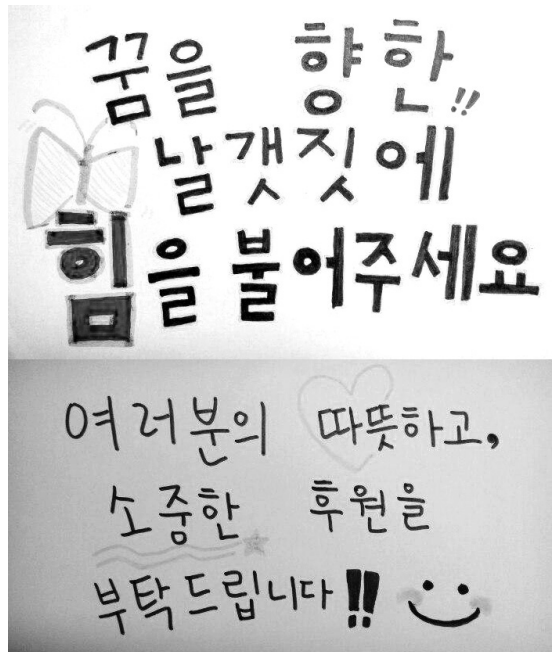 꿈을 향한!!
날갯짓에
힘을 불어주세요
여러분의 따뜻하고,
소중한 후원을
부탁드립니다!!